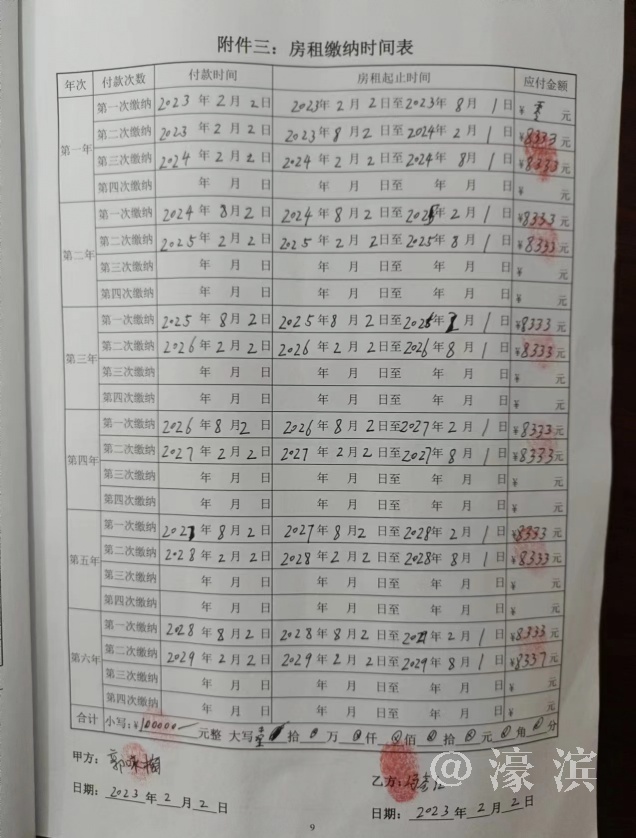 附件三：房租缴纳时间表
年次 付款次数 付款时间 房租起止时间 应付金额
第一年
第一次缴纳 2023年2月2日 2023年2月2日至2023年8月1日 ¥ 元
第二次缴纳 2023年2月2日 2023年8月2日至2024年2月1日 ¥8333元
第三次缴纳 2024年2月2日 2024年2月2日至2024年8月1日 ¥8333元
第四次缴纳 年 月 日 年 月 日至 年 月 日 ¥ 元
第二年
第一次缴纳 2024年8月2日 2024年8月2日至2025年2月1日 ¥8333元
第二次缴纳 2025年2月2日 2025年2月2日至2025年8月1日 ¥8333元
第三次缴纳 年 月 日 年 月 日至 年 月 日 ¥ 元
第四次缴纳 年 月 日 年 月 日至 年 月 日 ¥ 元
第三年
第一次缴纳 2025年8月2日 2025年8月2日至2026年2月1日 ¥8333元
第二次缴纳 2026年2月2日 2026年2月2日至2026年8月1日 ¥8333元
第三次缴纳 年 月 日 年 月 日至 年 月 日 ¥ 元
第四次缴纳 年 月 日 年 月 日至 年 月 日 ¥ 元
第四年
第一次缴纳 2026年8月2日 2026年8月2日至2027年2月1日 ¥8333元
第二次缴纳 2027年2月2日 2027年2月2日至2027年8月1日 ¥8333元
第三次缴纳 年 月 日 年 月 日至 年 月 日 ¥ 元
第四次缴纳 年 月 日 年 月 日至 年 月 日 ¥ 元
第五年
第一次缴纳 2027年8月2日 2027年8月2日至2028年2月1日 ¥8333元
第二次缴纳 2028年2月2日 2028年2月2日至2028年8月1日 ¥8333元
第三次缴纳 年 月 日 年 月 日至 年 月 日 ¥ 元
第四次缴纳 年 月 日 年 月 日至 年 月 日 ¥ 元
第六年
第一次缴纳 2028年8月2日 2028年8月2日至2029年2月1日 ¥8333元
第二次缴纳 2029年2月2日 2029年2月2日至2029年8月1日 ¥8337元
第三次缴纳 年 月 日 年 月 日至 年 月 日 ¥ 元
第四次缴纳 年 月 日 年 月 日至 年 月 日 ¥ 元
合计 小写：¥100000 元整 大写 壹 拾 0 万 0 仟 0 佰 0 拾 0 元 0 角 0 分
甲方：郭 乙方：
日期：2023年2月2日 日期：2023年2月2日
@濠滨
9